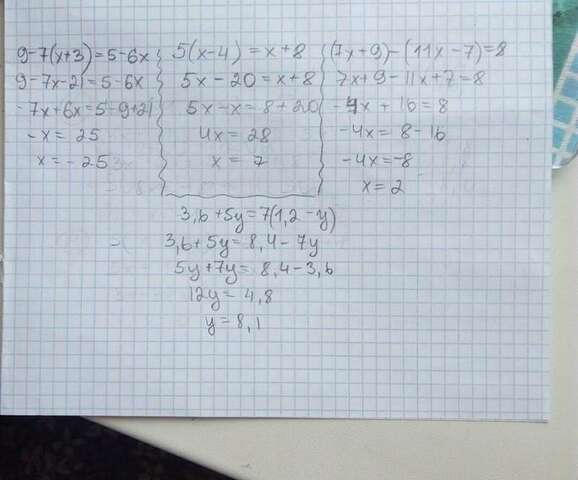 9-7(x+3)=5-6x
9-7x-21=5-6x
-7x+6x=5-9+21
-x=25
x=-25
5(x-4)=x+8
5x-20=x+8
5x-x=8+20
4x=28
x=7
(7x+9)-(11x-7)=8
7x+9-11x+7=8
-4x+16=8
-4x=8-16
-4x=-8
x=2
3,6+5y=7(1,2-y)
3,6+5y=8,4-7y
5y+7y=8,4-3,6
12y=4,8
y=8,1